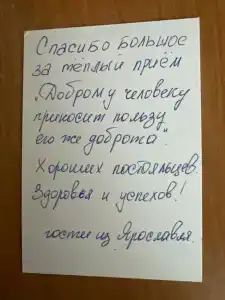 Спасибо большое
за тёплый приём
„Доброму человеку
приносит пользу
его же доброта".
Хороших постояльцев.
Здоровья и успехов!
гости из Ярославля.